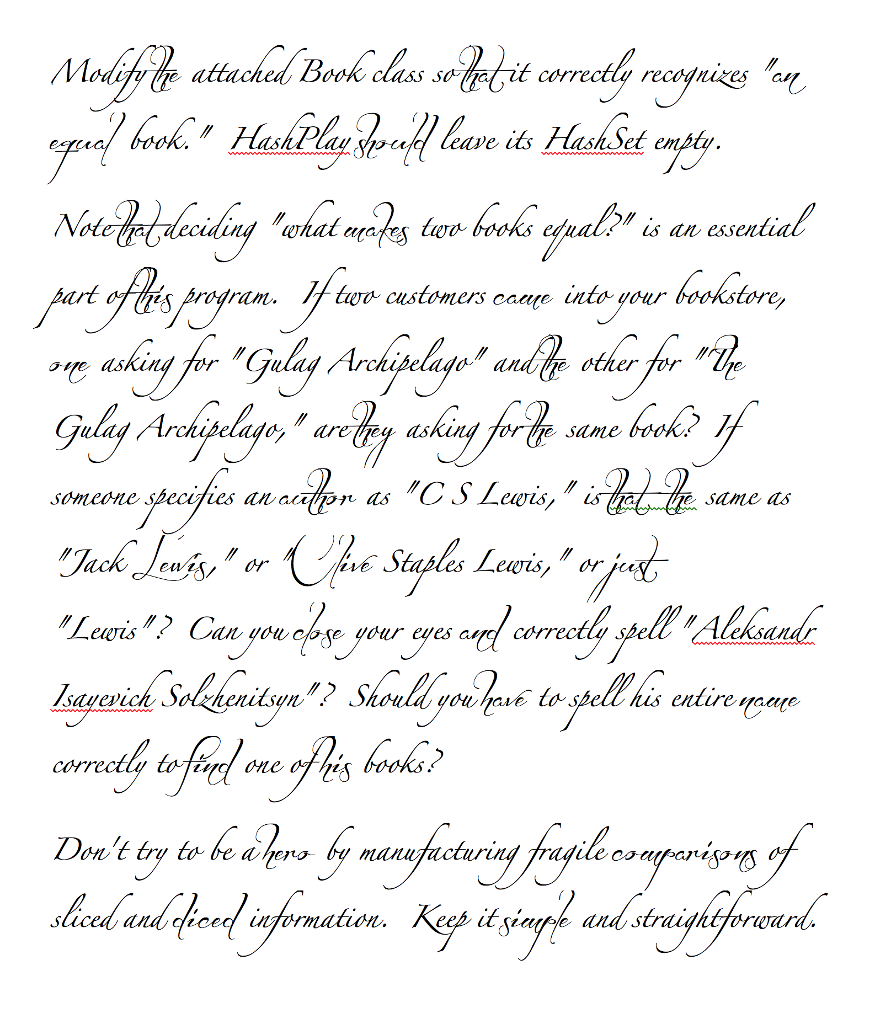 Modify the attached Book class so that it correctly recognizes "an
equal book." HashPlay should leave its HashSet empty.
Note that deciding "what makes two books equal?" is an essential
part of this program. If two customers came into your bookstore,
one asking for "Gulag Archipelago" and the other for "The
Gulag Archipelago," are they asking for the same book? If
someone specifies an author as "C S Lewis," is that the same as
"Jack Lewis," or "Clive Staples Lewis," or just
"Lewis"? Can you close your eyes and correctly spell "Aleksandr
Isayevich Solzhenitsyn"? Should you have to spell his entire name
correctly to find one of his books?
Don't try to be a hero by manufacturing fragile comparisons of
sliced and diced information. Keep it simple and straightforward.